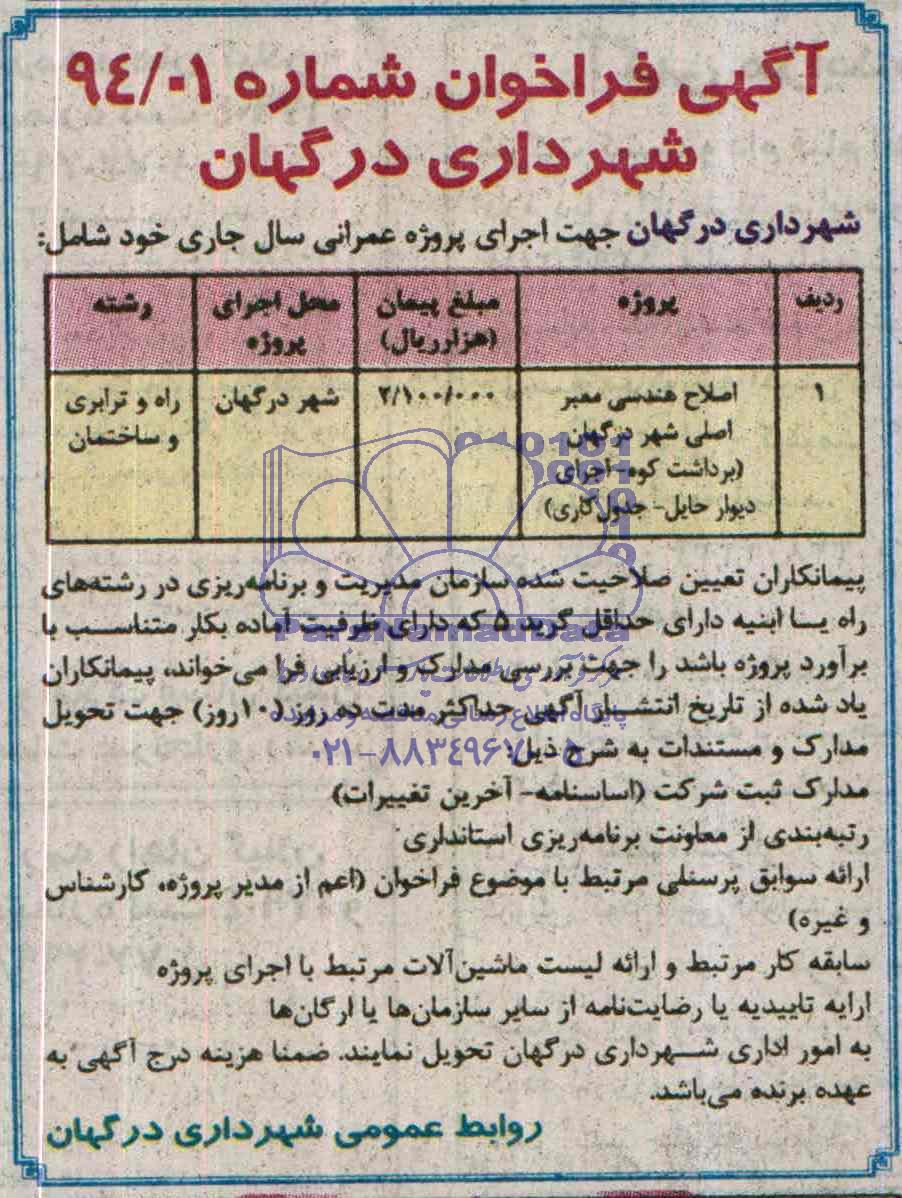 آگهی فراخوان شماره ۹۴/۰۱
شهرداری درگهان
شهرداری درگهان جهت اجرای پروژه عمرانی سال جاری خود شامل:
ردیف پروژه مبلغ پیمان (هزارریال) محل اجرای پروژه رشته
۱ اصلاح هندسی معبر اصلی شهر درگهان (برداشت کوه- اجرای دیوار حایل- جدول‌کاری) ۲/۱۰۰/۰۰۰ شهر درگهان راه و ترابری و ساختمان
پیمانکاران تعیین صلاحیت شده سازمان مدیریت و برنامه‌ریزی در رشته‌های
راه یا ابنیه دارای حداقل گرید ۵ که دارای ظرفیت آماده بکار متناسب با
برآورد پروژه باشد را جهت بررسی مدارک و ارزیابی فرا می‌خواند، پیمانکاران
یاد شده از تاریخ انتشار آگهی حداکثر مدت ده روز (۱۰روز) جهت تحویل
مدارک و مستندات به شرح ذیل:
مدارک ثبت شرکت (اساسنامه- آخرین تغییرات)
رتبه‌بندی از معاونت برنامه‌ریزی استانداری
ارائه سوابق پرسنلی مرتبط با موضوع فراخوان (اعم از مدیر پروژه، کارشناس
و غیره)
سابقه کار مرتبط و ارائه لیست ماشین‌آلات مرتبط با اجرای پروژه
ارایه تاییدیه یا رضایت‌نامه از سایر سازمان‌ها یا ارگان‌ها
به امور اداری شهرداری درگهان تحویل نمایند. ضمنا هزینه درج آگهی به
عهده برنده می‌باشد.
روابط عمومی شهرداری درگهان
ParsNamadData
۰۲۱-۸۸۳۴۹۶۷۰-۵